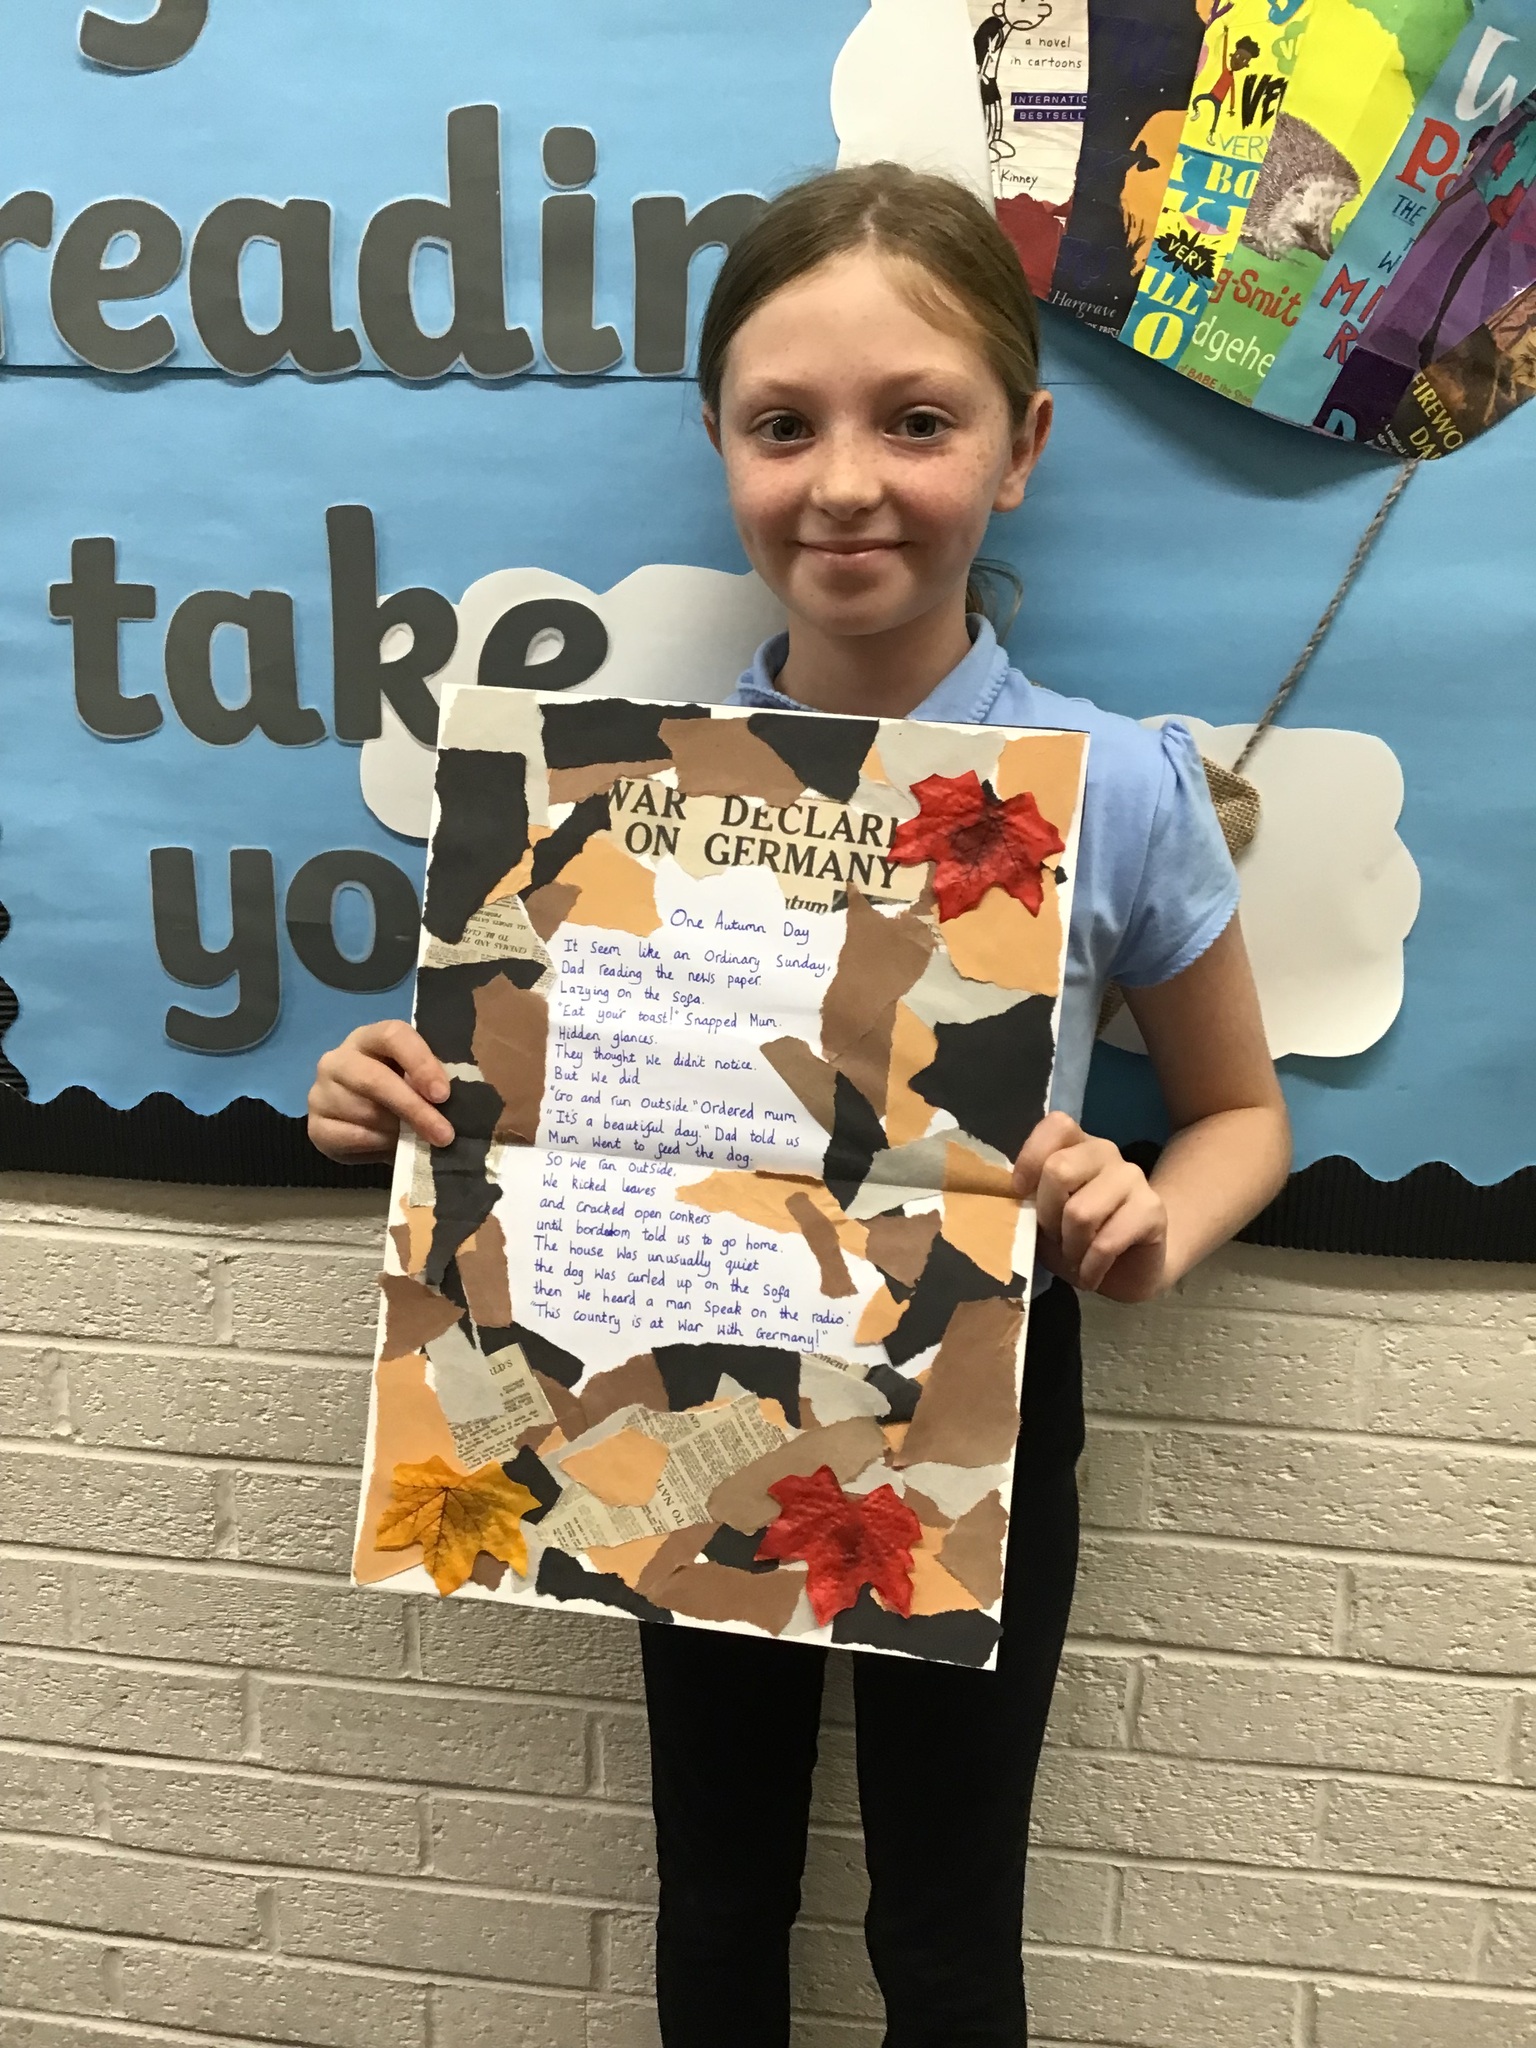 reading
take
yo
a novel
in cartoons
INTERNATIO
BESTSELL
Kinney
Hargrave
VE
VERY
Y BO
VERY
ILL
O
g-Smit
dgehe
of BABE the
W
THE
MI
R
FIREWO
DA
WAR DECLARE
ON GERMANY
One Autumn Day
It Seem like an Ordinary Sunday,
Dad reading the news paper.
Lazying on the Sofa.
"Eat your toast!" Snapped Mum.
Hidden glances.
They thought we didn't notice.
But we did
"Go and run Outside." Ordered mum
"It's a beautiful day." Dad told us
Mum went to feed the dog.
So we ran outside.
We kicked leaves
and cracked open conkers
until bordom told us to go home.
The house was unusually quiet
the dog was curled up on the Sofa
then we heard a man speak on the radio:
"This country is at war with Germany!"
CINEMAS AND T
TO BE CLO
TO NAT